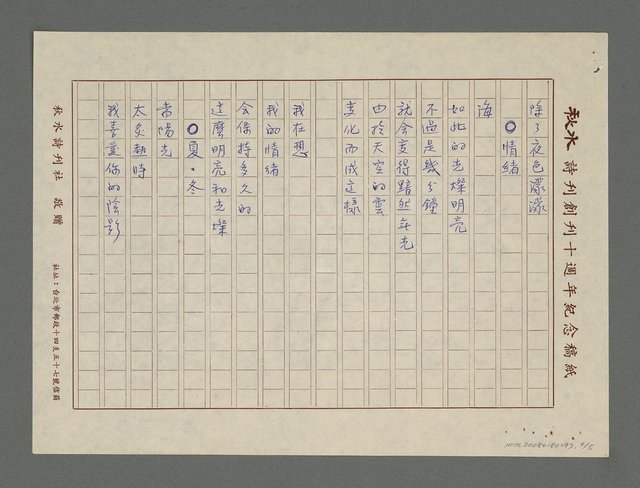 秋水詩刊創刊十週年紀念稿紙
除了夜色濛濛
○情緒
海
如此的光燦明亮
不過是幾分鐘
就会變得黯然無光
由於天空的雲
變化而成這樣
我在想
我的情緒
会保持多久的
這麼明亮和光燦
○夏·冬
當陽光
太炙熱時
我喜愛你的陰影
秋水詩刊社 敬贈
社址：台北市郵政十四支五十七號信箱